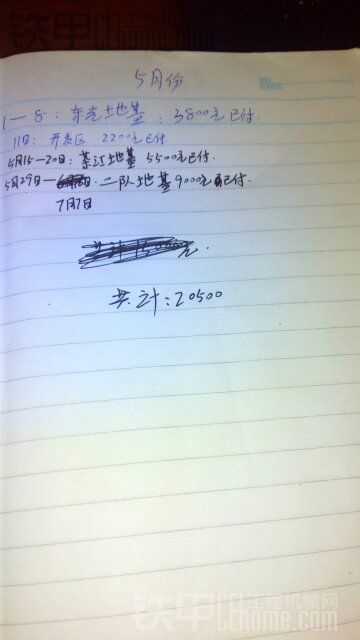 铁甲 CEhome.com
5月份
1—8: 东光土地基: 3800元已付.
11日: 开发区 2200元已付
5月15—20日: 某江地基 5500元已付.
5月29日— 二队地基9000元已付.
7月7日
共计:20500
铁甲 工程机械网 CEhome.com